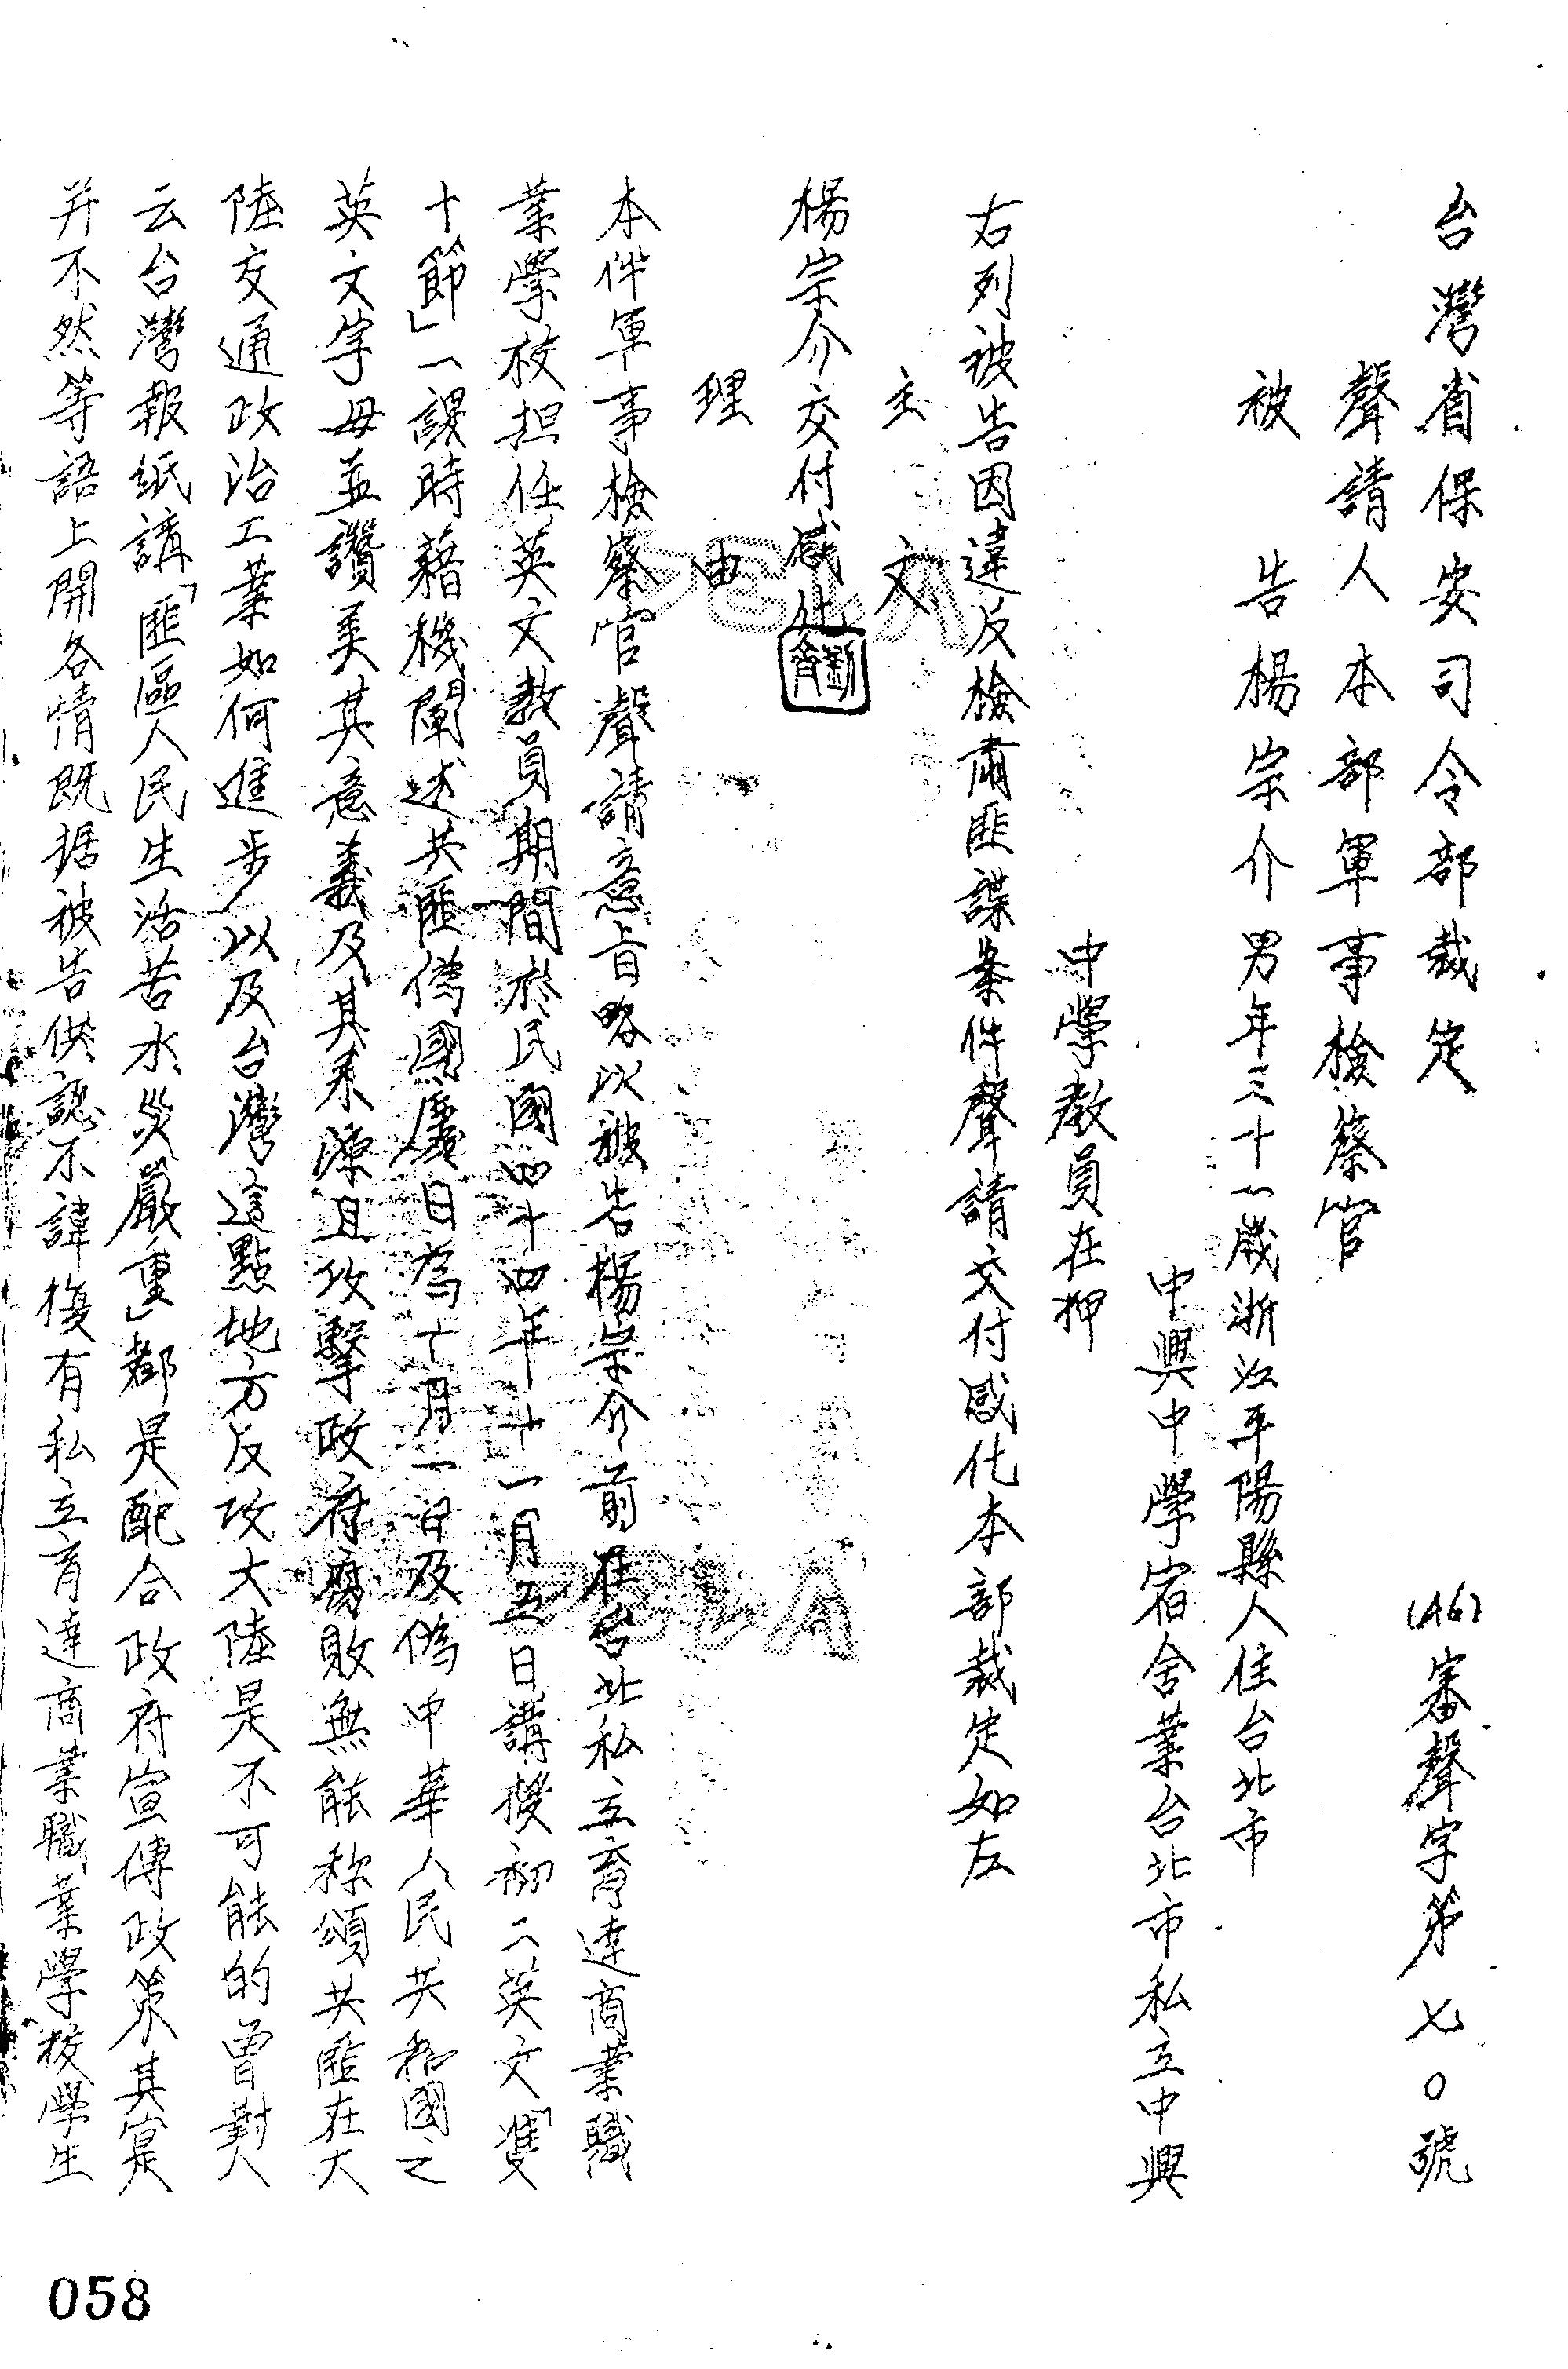 台灣省保安司令部裁定
(46)審聲字第七〇號
聲請人本部軍事檢察官
被告楊宗介男年三十一歲浙江平陽縣人住台北市
中興中學宿舍業台北市私立中興
中學教員在押
右列被告因違反檢肅匪諜条件聲請交付感化本部裁定如左
主文
楊宗介交付感化
理由
本件軍事檢察官聲請意旨略以被告楊宗介前在台北私立育達商業職
業學校担任英文教員期間於民國四十四年十一月五日講授初二英文「雙
十節」一課時藉機闡述共匪偽國慶日為十月一日及偽中華人民共和國之
英文字母並讚美其意義及其來源且攻擊政府腐敗無能称頌共匪在大
陸交通政治工業如何進步以及台灣這點地方反攻大陸是不可能的曾對人
云台灣報紙講「匪區人民生活苦水災嚴重」都是配合政府宣傳政策其實
并不然等語上開各情既据被告供認不諱復有私立育達商業職業學校學生
058